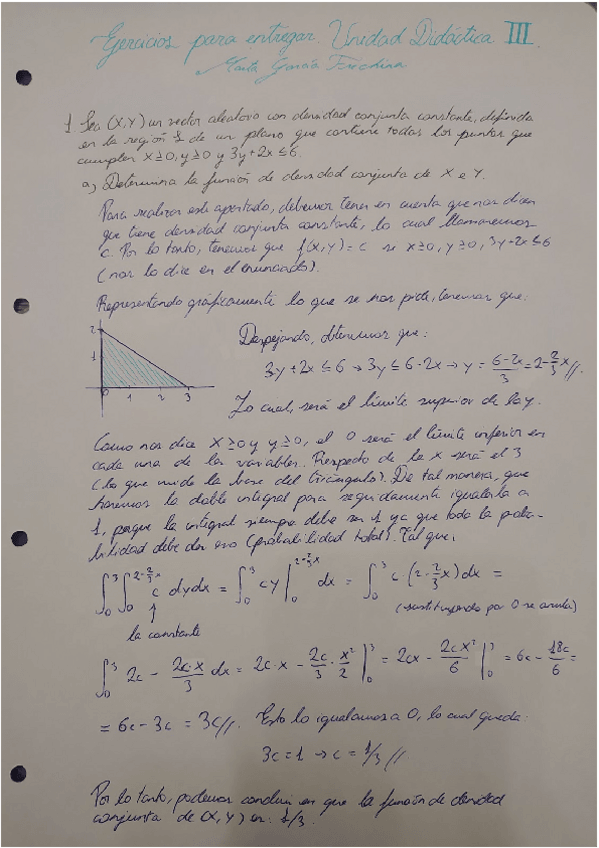 Ejercicios para entregar. Unidad Didáctica III.
Marta García
1. Sea (X,Y) un vector aleatorio con densidad conjunta constante, definida
en la región 1 de un plano que contiene todos los puntos que
cumplen x≥0, y≥0 y 3y+2x≤6.
a) Determina la función de densidad conjunta de X e Y.
Para realizar este apartado, debemos tener en cuenta que nos dicen
que tiene densidad conjunta constante, lo cual llamaremos
c. Por lo tanto, tenemos que f(x,y)=c se x≥0, y≥0, 3y+2x≤6
(nos lo dice en el enunciado).
Representando gráficamente lo que se nos pide, tenemos que:
2
1
0 1 2 3
Despejando, obtenemos que:
3y+2x≤6 → 3y≤6-2x → y = (6-2x)/3 = 2-2/3x//.
Lo cual, será el límite superior de la y.
Como nos dice x≥0 y y≥0, el 0 será el límite inferior en
cada una de las variables. Respecto de la x será el 3
(lo que mide la base del triángulo). De tal manera, que
haremos la doble integral para seguidamente igualarla a
1, porque la integral siempre debe ser 1 ya que toda la proba-
bilidad debe dar eso (probabilidad total). Tal que,
∫₀³ ∫₀^(2-2/3x) c dydx = ∫₀³ cy |₀^(2-2/3x) dx = ∫₀³ c·(2-2/3x) dx =
↑
la constante
(sustituyendo por 0 se anula)
∫₀³ 2c - 2c·x/3 dx = 2c·x - 2c/3 · x²/2 |₀³ = 2cx - 2cx²/6 |₀³ = 6c - 18c/6 =
= 6c - 3c = 3c//. Esto lo igualamos a 0, lo cual queda:
3c=1 → c=1/3//.
Por lo tanto, podemos concluir en que la función de densidad
conjunta de (X,Y) es: 1/3.